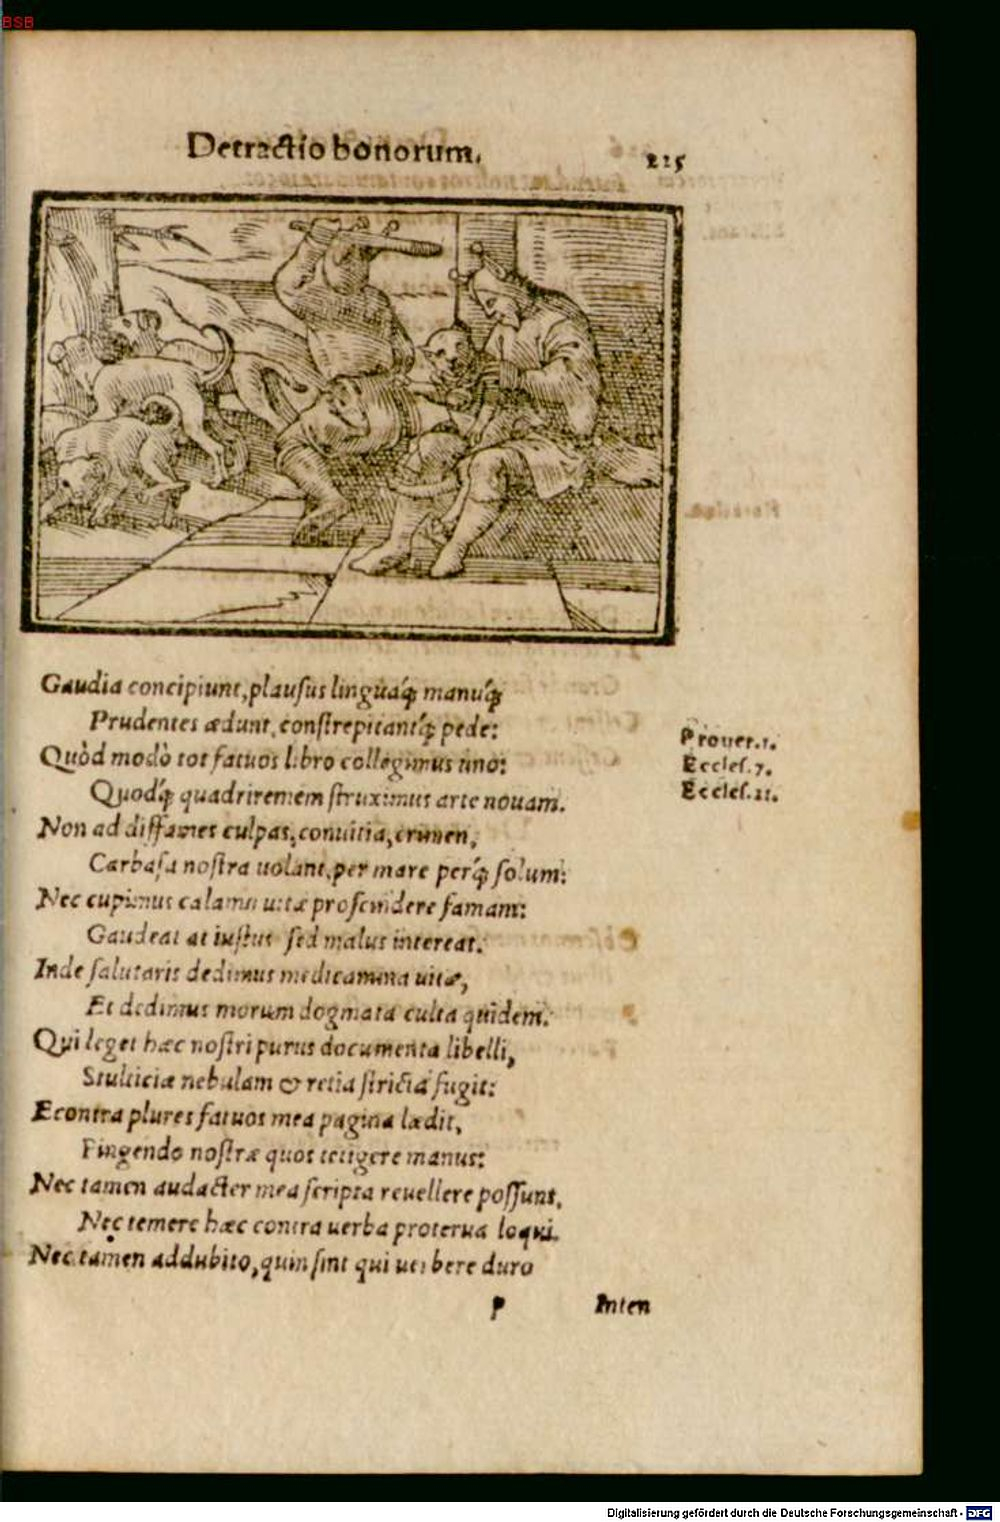 BSB
Detractio bonorum.
225
Gaudia concipiunt, plauſus linguáq; manuq́;
Prudentes ædunt, conſtrepitantq́; pede:
Prouer. 1.
Quòd modò tot fatuos libro collegimus uno:
Eccleſ. 7.
Quodq́; quadriremem ſtruximus arte nouam.
Eccleſ. 11.
Non ad diffames culpas, conuitia, crimen,
Carbaſa noſtra uolant, per mare perq́; ſolum:
Nec cupimus calamo uitæ proſcindere famam:
Gaudeat at iuſtus ſed malus intereat.
Inde ſalutaris dedimus medicamina uitæ,
Et dedimus morum dogmata culta quidem.
Qui leget hæc noſtri purus documenta libelli,
Stulticiæ nebulam & retia ſtricta fugit:
Econtra plures fatuos mea pagina lædit,
Pingendo noſtræ quos tetigere manus:
Nec tamen audacter mea ſcripta reuellere poſſunt,
Nec temere hæc contra uerba proterua loqui.
Nec tamen addubito, quin ſint qui uerbere duro
P
Inten
Digitalisierung gefördert durch die Deutsche Forschungsgemeinschaft - DFG